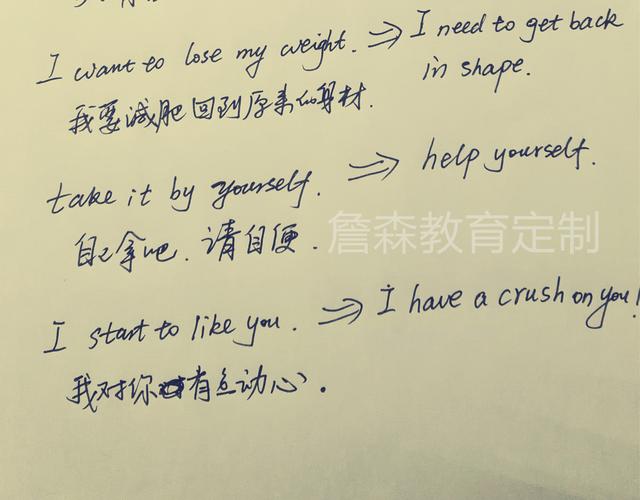 I want to lose my weight. ⇒ I need to get back
in shape.
我要减肥回到原来的身材.
take it by yourself. ⇒ help yourself.
自己拿吧. 请自便.
詹森教育定制
I start to like you. ⇒ I have a crush on you!
我对你有点动心.